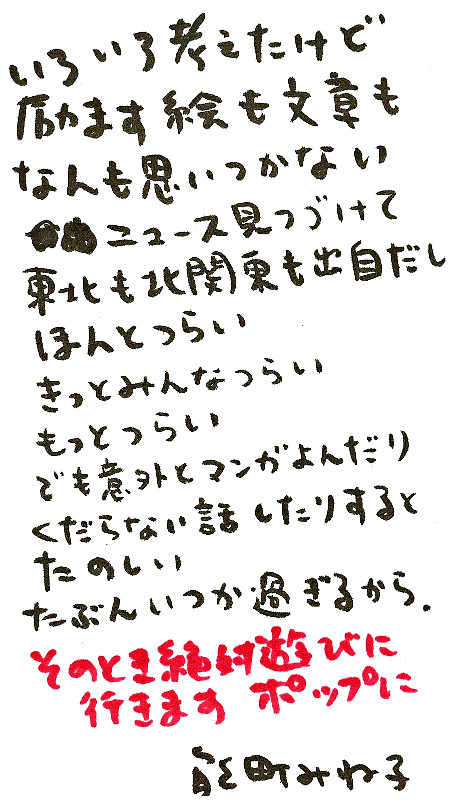 いろいろ考えたけど
励ます絵も文章も
なんも思いつかない
ニュース見つづけて
東北も北関東も出自だし
ほんとつらい
きっとみんなつらい
もっとつらい
でも意外とマンガよんだり
くだらない話したりすると
たのしい
たぶんいつか過ぎるから.
そのとき絶対遊びに
行きます ポップに
能町みね子